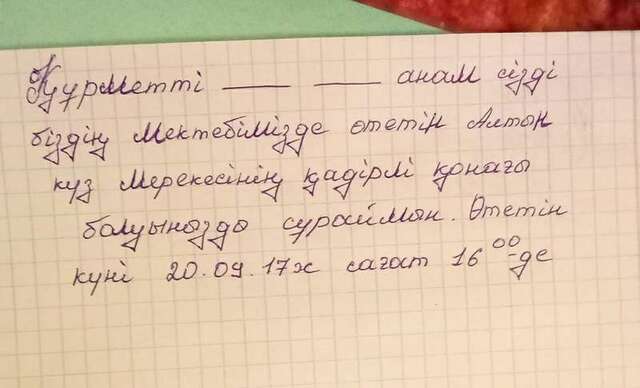 Құрметті ___ ___ анам сізді
біздің мектебімізде өтетін Алтын
күз мерекесінің қадірлі қонағы
болуыңызды сұраймын. Өтетін
күні 20.09.17ж сағат 16 00-де